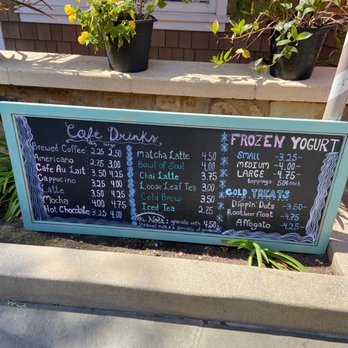 Café Drinks
Brewed Coffee 2.25 2.50
Americano 2.75 3.00
Café Au Lait 3.25 4.00
Cappucino 3.25 4.00
Latte 3.50 4.25
Mocha 4.00 4.75
Hot Chocolate 3.25 4.00
Matcha Latte 4.50
Bowl of Soul 4.00
Chai Latte 3.75
Loose Leaf Tea 3.00
Cold Brew 3.50
Iced Tea 2.75
granola with 4.50
FROZEN YOGURT
SMALL -3.25-
MEDIUM -4.00-
LARGE -4.75
toppings 50¢ each
COLD TREATS
Dippin' Dots -3.50-
Root beer float -4.75
Affogato -4.25